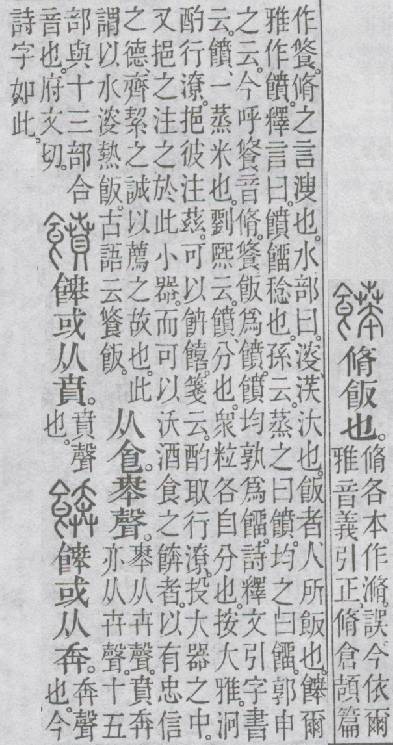 脩飯也。
脩各本作滫。誤今依爾
雅音義引正。脩倉頡篇
作餐。脩之言溲也。水部曰。溲、浸汏也。飯者、人所飯也。餴爾
雅作饙。釋言曰。饙餾稔也。孫云。蒸之曰饙。均之曰餾。郭申
之云。今呼餐音脩。餐飯爲饙。饙均孰爲餾。詩釋文引字書
云。饙、一蒸米也。劉熙云。饙、分也。衆粒各自分也。按大雅。泂
酌行潦。挹彼注茲。可以餴饎。箋云。酌取行潦。投大器之中。
又挹之注之於此小器。而可以沃酒食之餴者。以有忠信
之德。齊絜之誠以薦之故也。此
謂以水溲熱飯。古語云餐飯。
从𠊊。𠦪聲。
𠦪从卉聲。賁奔
亦从卉聲。十五
部與十三部合
音也。府文切。
饙
或从賁。
賁聲
也。
餴
或从奔。
奔聲
也。今
詩字如此。